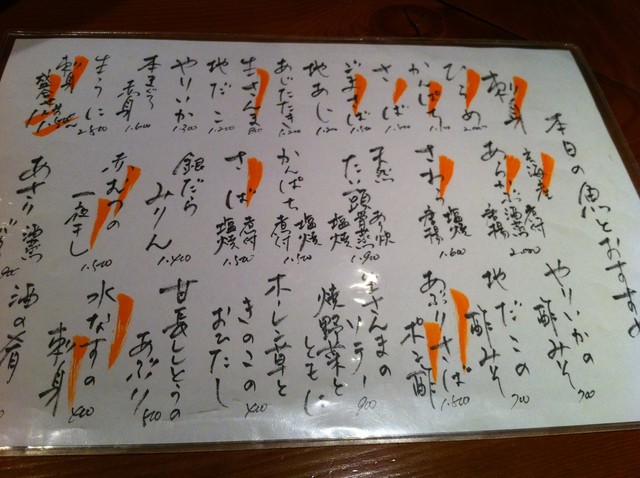 本日の魚とおすすめ
刺身
ひらめ 2,000
かんぱち 1,500
さば 1,500
ごまさば 1,500
地あじ 1,200
あじたたき 1,200
生さんま
地だこ 1,200
やりいか 1,300
本まぐろ
赤身 1,600
生うに 2,500
刺身
盛合せ
玄海産
あらかぶ 煮付
酒蒸
唐揚 2,000
さわら 塩焼
唐揚 1,600
天然
たい頭 あら炊
骨蒸
塩焼 1,900
かんぱち 塩焼
煮付 1,500
さば 煮付
塩焼 1,500
銀だら
みりん 1,400
赤むつの
一夜干し 1,500
あさり酒蒸
やりいかの
酢みそ 700
地だこの
酢みそ 700
あぶりさば
ポン酢 1,500
生さんまの
ソテー
焼野菜と
ともに 900
ホーレン草と
きのこの
おひたし 400
甘長しとうの
あぶり 500
水なすの
刺身 400
酒の肴